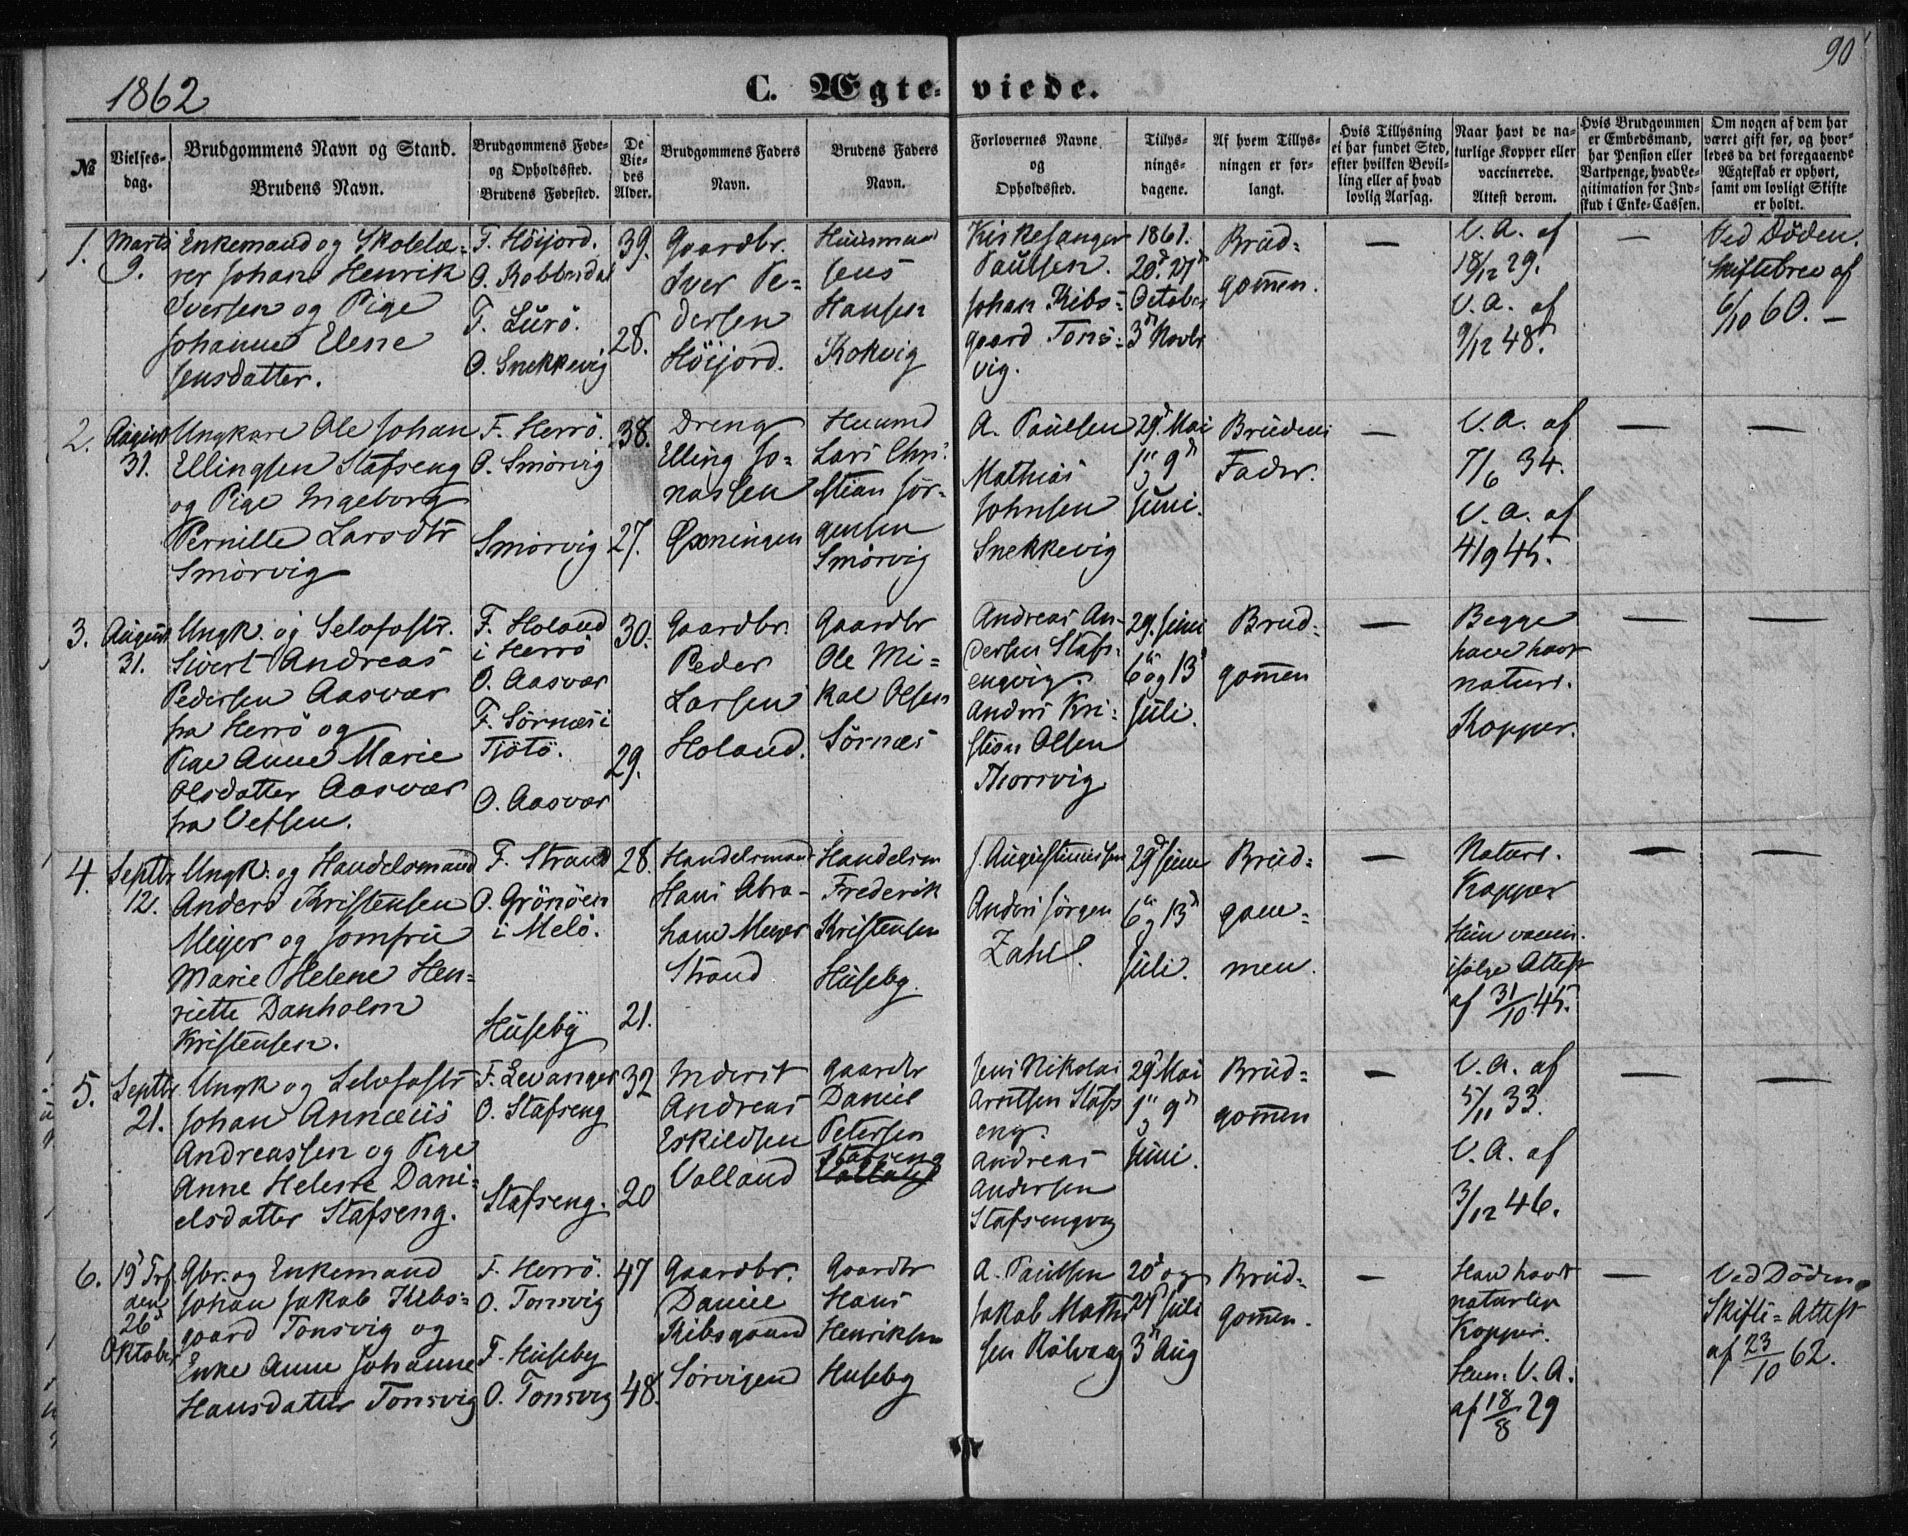 1862
C. Ægteviede.
90
№
Vielses-
dag.
Brudgommens Navn og Stand.
Brudens Navn.
Brudgommens Føde-
og Opholdssted.
Brudens Fødested.
De
Vie-
des
Alder.
Brudgommens Faders
Navn.
Brudens Faders
Navn.
Forlovernes Navne
og
Opholdssted.
Tillys-
nings-
dagene.
Af hvem Tillys-
ningen er for-
langt.
Hvis Tillysning
ei har fundet Sted,
efter hvilken Bevil-
ling eller af hvad
lovlig Aarsag.
Naar havt de na-
turlige Kopper eller
vaccinerede.
Attest derom.
Hvis Brudgommen
er Embedsmand,
har Pension eller
Vartpenge, hvad Le-
gitimation for Ind-
skud i Enke-Cassen.
Om nogen af dem har
været gift før, og hvor-
ledes da det foregaaende
Ægteskab er ophørt,
samt om lovligt Skifte
er holdt.
1.
Marts
9.
Enkemand og Skolelæ-
rer Johan Henrik
Iversen og Pige
Johanne Elene
Jensdatter.
F. Höijord.
O. Kobberdal
F. Lurö.
O. Snekkevig
39.
28.
Gaardbr.
Iver Pe-
dersen
Höijord.
Huusmand
Jens
Hansen
Kokvig
Kirkesanger
Paulsen.
Johan Kibs-
gaard Tons-
vig.
1861.
20d 27d
October
3d Novbr
Brud-
gommen.
—
V. A. af
18/12 29.
V. A. af
9/12 48.
—
Ved Döden.
Skiftebrev af
6/10 60. —
2.
August
31.
Ungkare Ole Johan
Ellingsen Stafseng
og Pige Ingeborg
Pernille Larsdtr
Smörvig
F. Herrö.
O. Smörvig
Smörvig
38.
27.
Dreng
Elling Jo-
nassen
Øxningen
Huusmd
Lars Chri-
stian Jör-
gensen
Smörvig
A. Paulsen
Mathias
Johnsen
Snekkevig
29d Mai
1, 9d
Juni.
Brudens
Fader.
—
V. A. af
7/6 34.
V. A. af
4/9 45.
—
—
3.
August
31.
Ungk. og Selvfostr.
Sivert Andreas
Pedersen Aasvær
fra Herrö og
Pige Anne Marie
Olsdatter Aasvær
fra Vefsen.
F. Holand
i Herrö
O. Aasvær
F. Sörnæs i
Tjötö.
O. Aasvær
30.
29.
Gaardbr.
Peder
Larsen
Holand.
Gaardbr
Ole Mi-
kal Olsen
Sörnæs
Andreas An-
dersen Stafs-
engvig.
Anders Kri-
stian Olsen
Thorsvig
29. Juni
6 og 13
Juli.
Brud-
gommen
—
Begge
have havt
naturl.
Kopper.
—
—
4.
Septbr
12.
Ungk. og Handelsmand
Anders Kristensen
Meyer og Jomfru
Marie Helene Hen-
riette Danholm
Kristensen.
F. Strand
O. Grönöen
i Melö.
Huseby
28.
21.
Handelsmand
Hans Abra-
ham Meyer
Strand
Handelsm
Frederik
Kristensen
Huseby.
J. Augustinussen
Anders Jörgen
Zahl.
29d Juni
6 og 13d
Juli.
Brud-
gom-
men.
—
Naturl.
Kopper
Hun vaccin.
ifölge Attest
af 31/10 45.
—
—
5.
Septbr
21.
Ungk og Selvfostr
Johan Annæus
Andreassen og Pige
Anne Helene Dani-
elsdatter Stafseng.
F. Levanger
O. Stafseng
Stafseng.
32
20
Inderst
Andreas
Eskildsen
Valland
Gaardbr
Daniel
Petersen
Stafseng
Jens Nikolai
Arntsen Stafs
eng.
Andreas
Andersen
Stafsengvig
29d Mai
1, 9d
Juni.
Brud-
gommen
—
V. A. af
5/11 33.
V. A. af
3/12 46.
—
—
6.
19d Trf.
den
26d
Oktober
Gbr. og Enkemand
Johan Jakob Kibs-
gaard Tonsvig og
Enke Anne Johanne
Hansdatter Tonsvig
F. Herrö.
O. Tonsvig
F. Huseby
O. Tonsvig
47
48.
Gaardbr.
Daniel
Kibsgaard
Sörvigen
Gaardbr
Hans
Henriksen
Huseby
A. Paulsen
Jakob Mathi
sen Rölvaag
20d og
27d Juli
3d Aug
Brud-
gommen.
—
Han havt
naturlig
Kopper.
Hun: V. A.
af 18/8 29
—
Ved Döden.
Skifte-Attest
af 23/10 62.